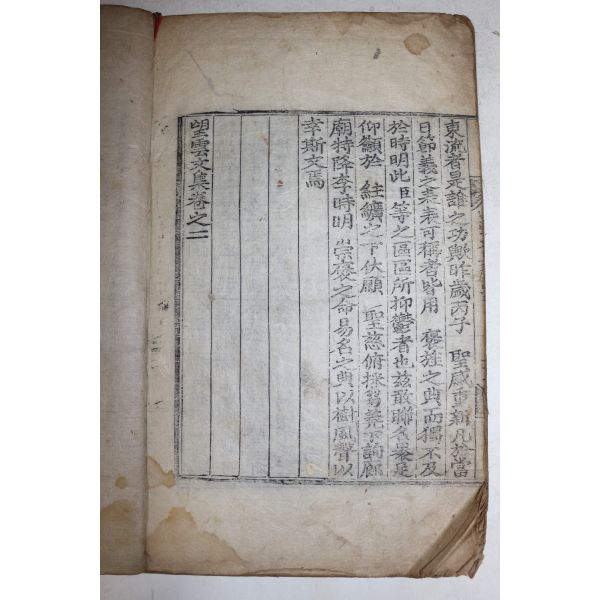 東流者是誰之功歟昨歲丙子 聖感重新凡於當
日節義之表表可稱者皆用 褒旌之典而獨不及
於時明此臣等之區區所抑鬱者也玆敢聯名裹足
仰籲於 紸纊之下伏願 聖慈俯採芻蕘 詢廊
廟特降李時明 崇褒之命易名之典以樹風聲以
幸斯文焉
望雲文集卷之二